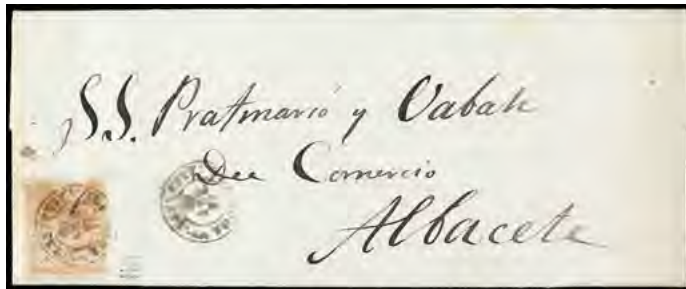 SS. Pratmarsó y
Del Comercio
Albacete